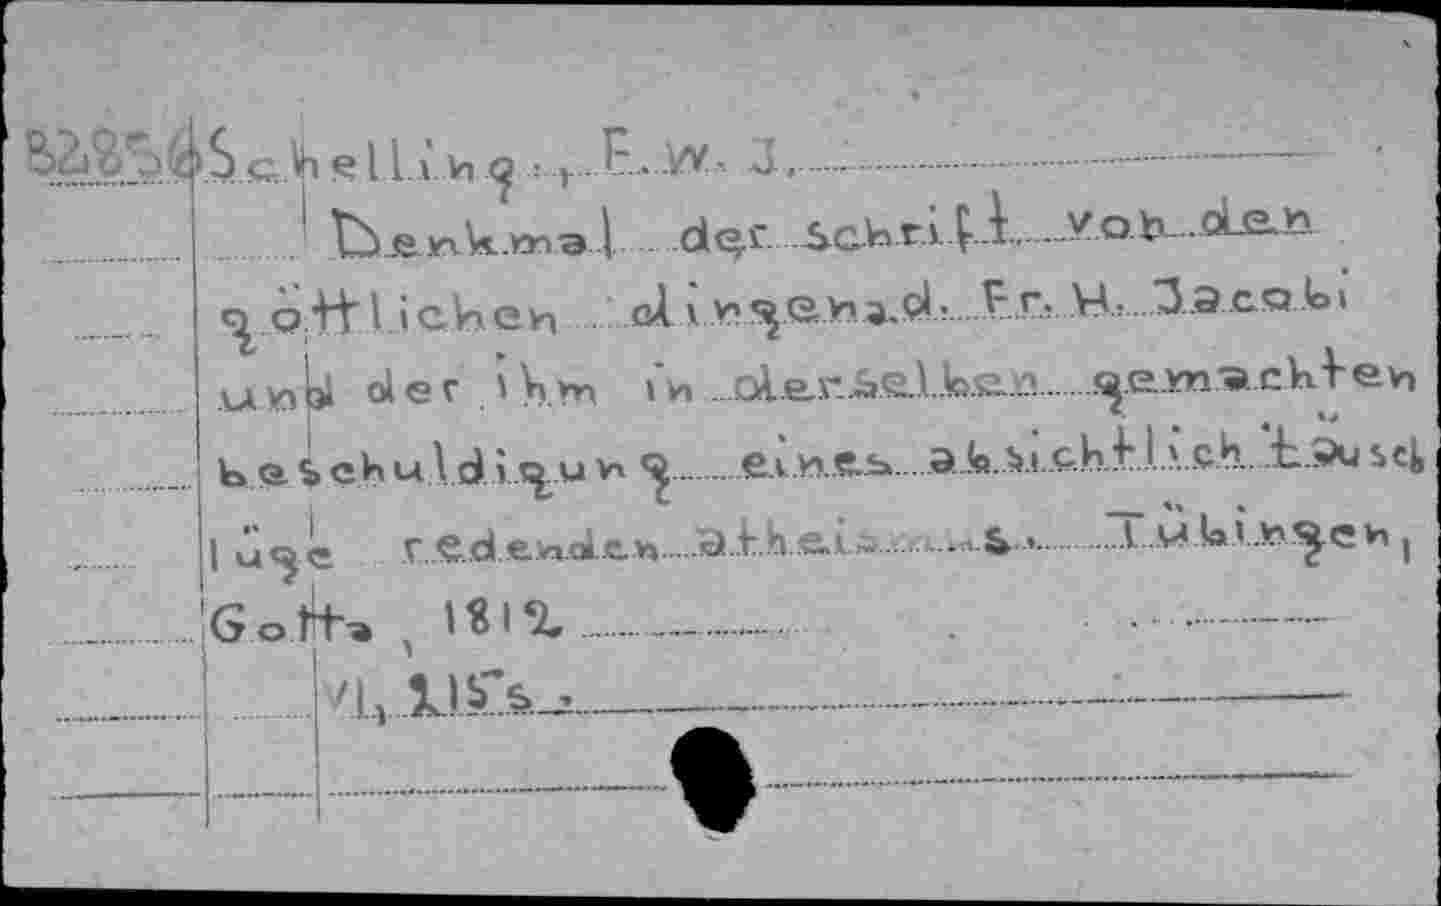 82856 Schelling, F. W. J.
Denkmal der schrift von den
göttlichen dingend. Fr. H. Jacobi
und der ihm in derselben gemachten
beschuldigung eines absichtlich täusch
lüge redenden atheis s. Tübingen,
Gotta, 1812.